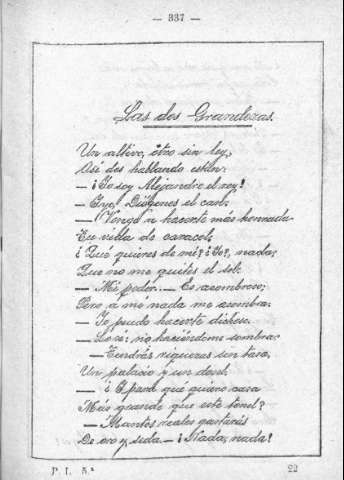 — 337 —
Las dos Grandezas.
Un altivo, otro sin ley,
Así dos hablando están.
— ¡Yo soy Alejandro el rey!
— Y yo, Diógenes el can.
— Vengo a hacerte más honrada
Tu vida de caracol,
¿Qué quieres de mí? ¿Yo?, nada;
Que no me quites el sol.
— Mi poder.— Es asombroso;
Pero a mí nada me asombra.
— Yo puedo hacerte dichoso.
— Lo sé: no haciéndome sombra.
— Tendrás riquezas sin tasa,
Un palacio y un dosel.
— ¿Y para qué quiero casa
Más grande que este tonel?
— Mantos reales gastarás
De oro y seda.— ¡Nada, nada!
P. I. 5.ª 22